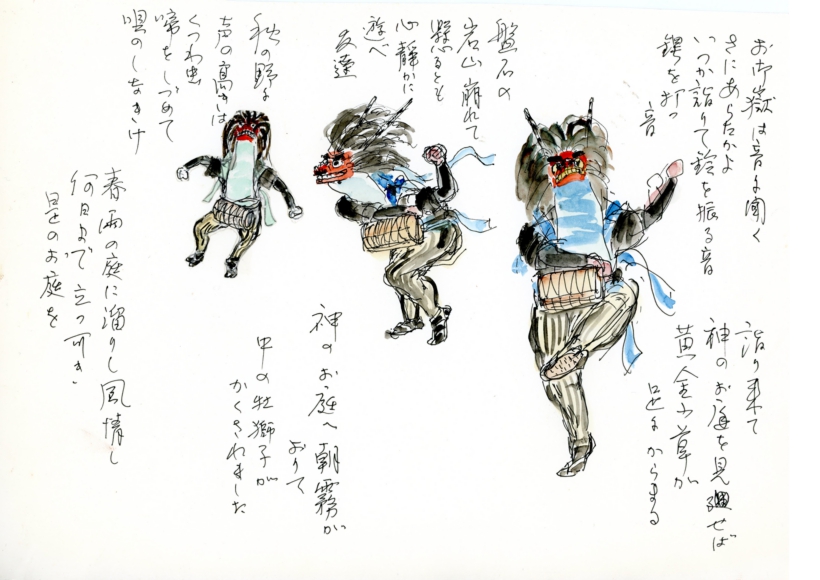 お御嶽は音に聞く
さにあらたかよ
いつか詣りて鈴を振る音
鍔を打つ
音
詣り来て
神のお庭を見廻せば
黄金小草が
足にからまる
盤石の
岩山崩れて
懸るとも
心静かに
遊べ
友達
神のお庭へ朝霧が
おりて
中の牡獅子が
かくされました
秋の野に
声の高きは
くつわ虫
啼をしづめて
唄のしなきけ
春雨の庭に溜りし風情し
何日まで立つ可き
是のお庭を